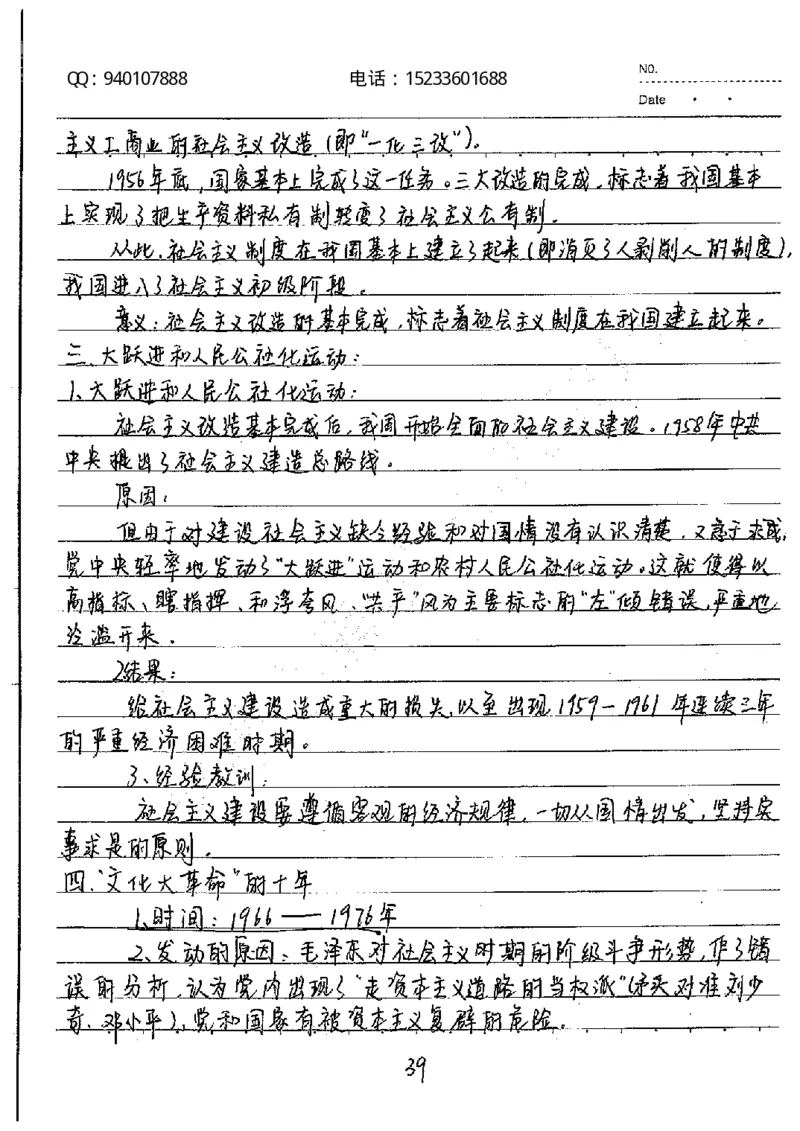 QQ：940107888
电话：15233601688
NO.
Date
主义工商业的社会主义改造（即“一化三改”）。
1956年底，国家基本上完成了这一任务。三大改造的完成，标志着我国基本
上实现了把生产资料私有制转变了社会主义公有制。
从此，社会主义制度在我国基本上建立了起来（即消灭了人剥削人的制度），
我国进入了社会主义初级阶段。
意义：社会主义改造的基本完成，标志着社会主义制度在我国建立起来。
三、大跃进和人民公社化运动：
1、大跃进和人民公社化运动：
社会主义改造基本完成后，我国开始全面的社会主义建设。1958年中共
中央提出了社会主义建造总路线。
原因：
但由于对建设社会主义缺乏经验和对国情没有认识清楚，又急于求成，
党中央轻率地发动了“大跃进”运动和农村人民公社化运动。这就使得以
高指标、瞎指挥、和浮夸风、“共产”风为主要标志的“左”倾错误，严重地
泛滥开来。
2结果：
给社会主义建设造成重大的损失，以至出现1959—1961年连续三年
的严重经济困难时期。
3、经验教训：
社会主义建设要遵循客观的经济规律，一切从国情出发，坚持实
事求是的原则。
四.“文化大革命”的十年
1、时间：1966——1976年
2、发动的原因：毛泽东对社会主义时期的阶级斗争形势，作了错
误的分析，认为党内出现了“走资本主义道路的当权派”（矛头对准刘少
奇、邓小平），党和国家有被资本主义复辟的危险。
39